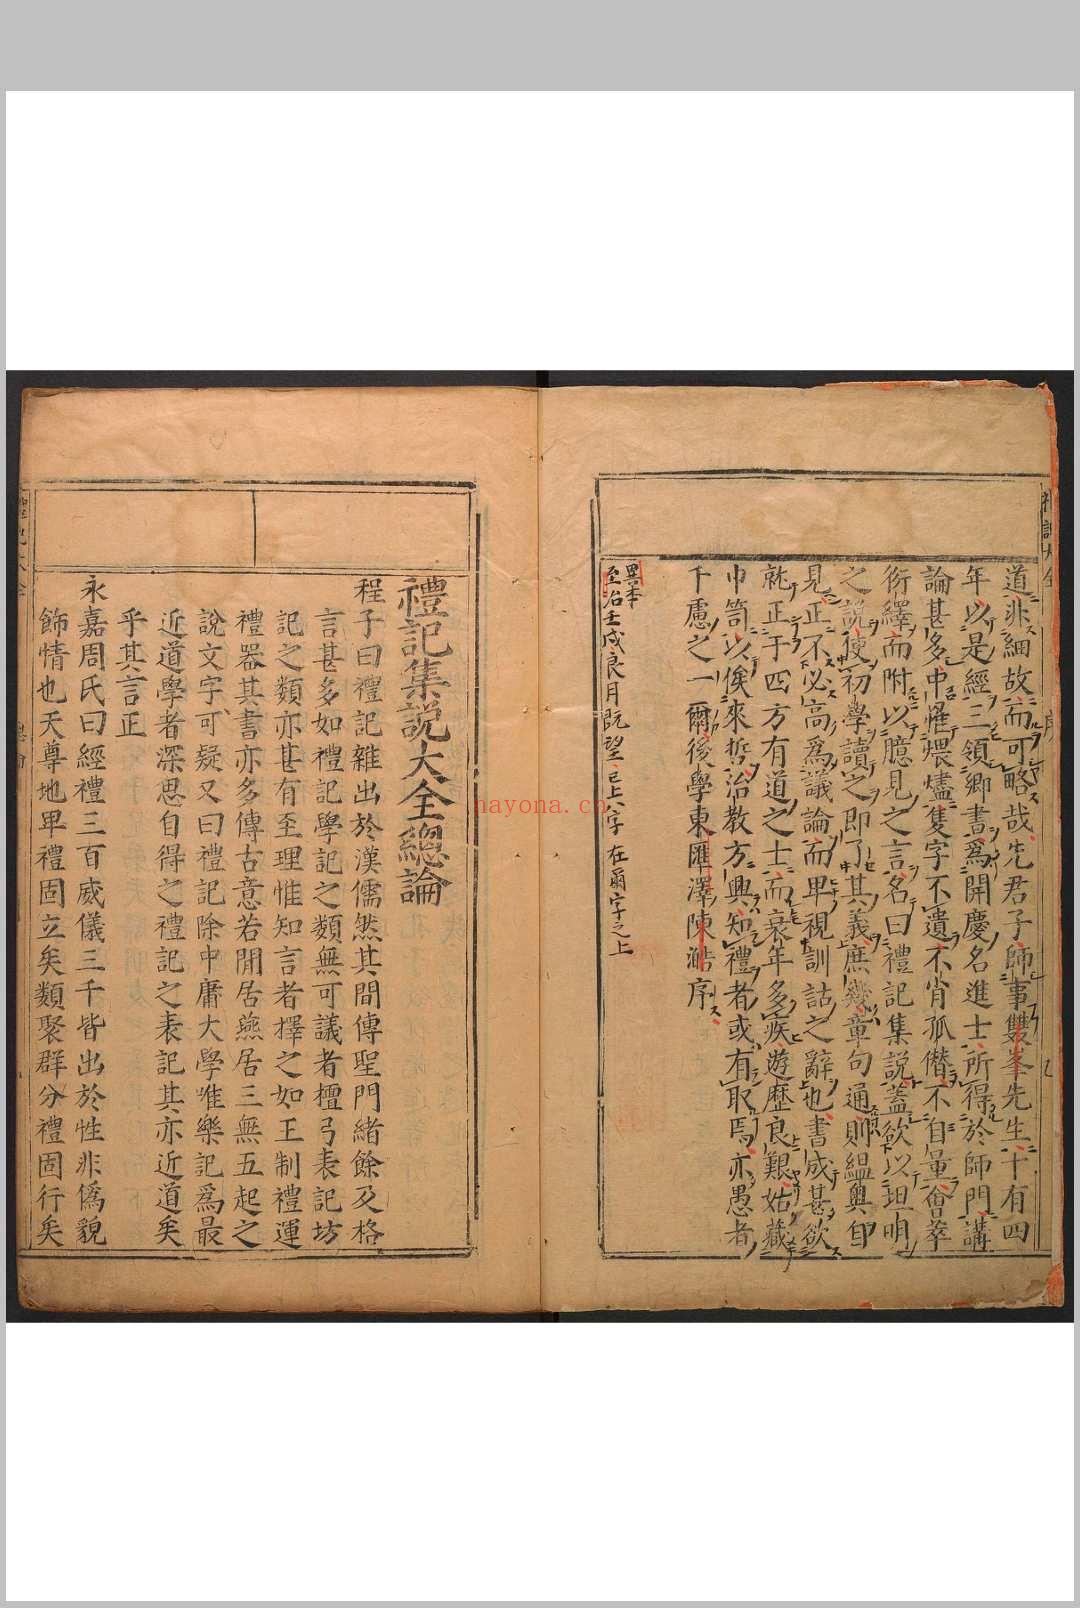 道非細故而可略哉先君子師事雙峯先生十有四
年以是經三領鄉書爲開慶名進士所得於師門講
論甚多中罹煨燼隻字不遺不肖孤僭不自量會萃
衍繹而附以臆見之言名曰禮記集説蓋欲以坦明
之説使初學讀之即了其義庶幾章句通則緼奧自
見正不必高爲議論而卑視訓詁之辭也書成甚欲
就正于四方有道之士而衰年多疾遊歷良艱姑藏
巾笥以俟來哲治教方興知禮者或有取焉亦愚者
千慮之一爾後學東匯澤陳澔序
異本
至治壬戌良月既望已上八字在爾字之上
禮記集説大全總論
程子曰禮記雜出於漢儒然其間傳聖門緒餘及格
言甚多如禮記學記之類無可議者檀弓表記坊
記之類亦甚有至理惟知言者擇之如王制禮運
禮器其書亦多傳古意若閒居燕居三無五起之
説文字可疑又曰禮記除中庸大學唯樂記爲最
近道學者深思自得之禮記之表記其亦近道矣
乎其言正
永嘉周氏曰經禮三百威儀三千皆出於性非僞貌
飾情也天尊地卑禮固立矣類聚群分禮固行矣
nayona.cn